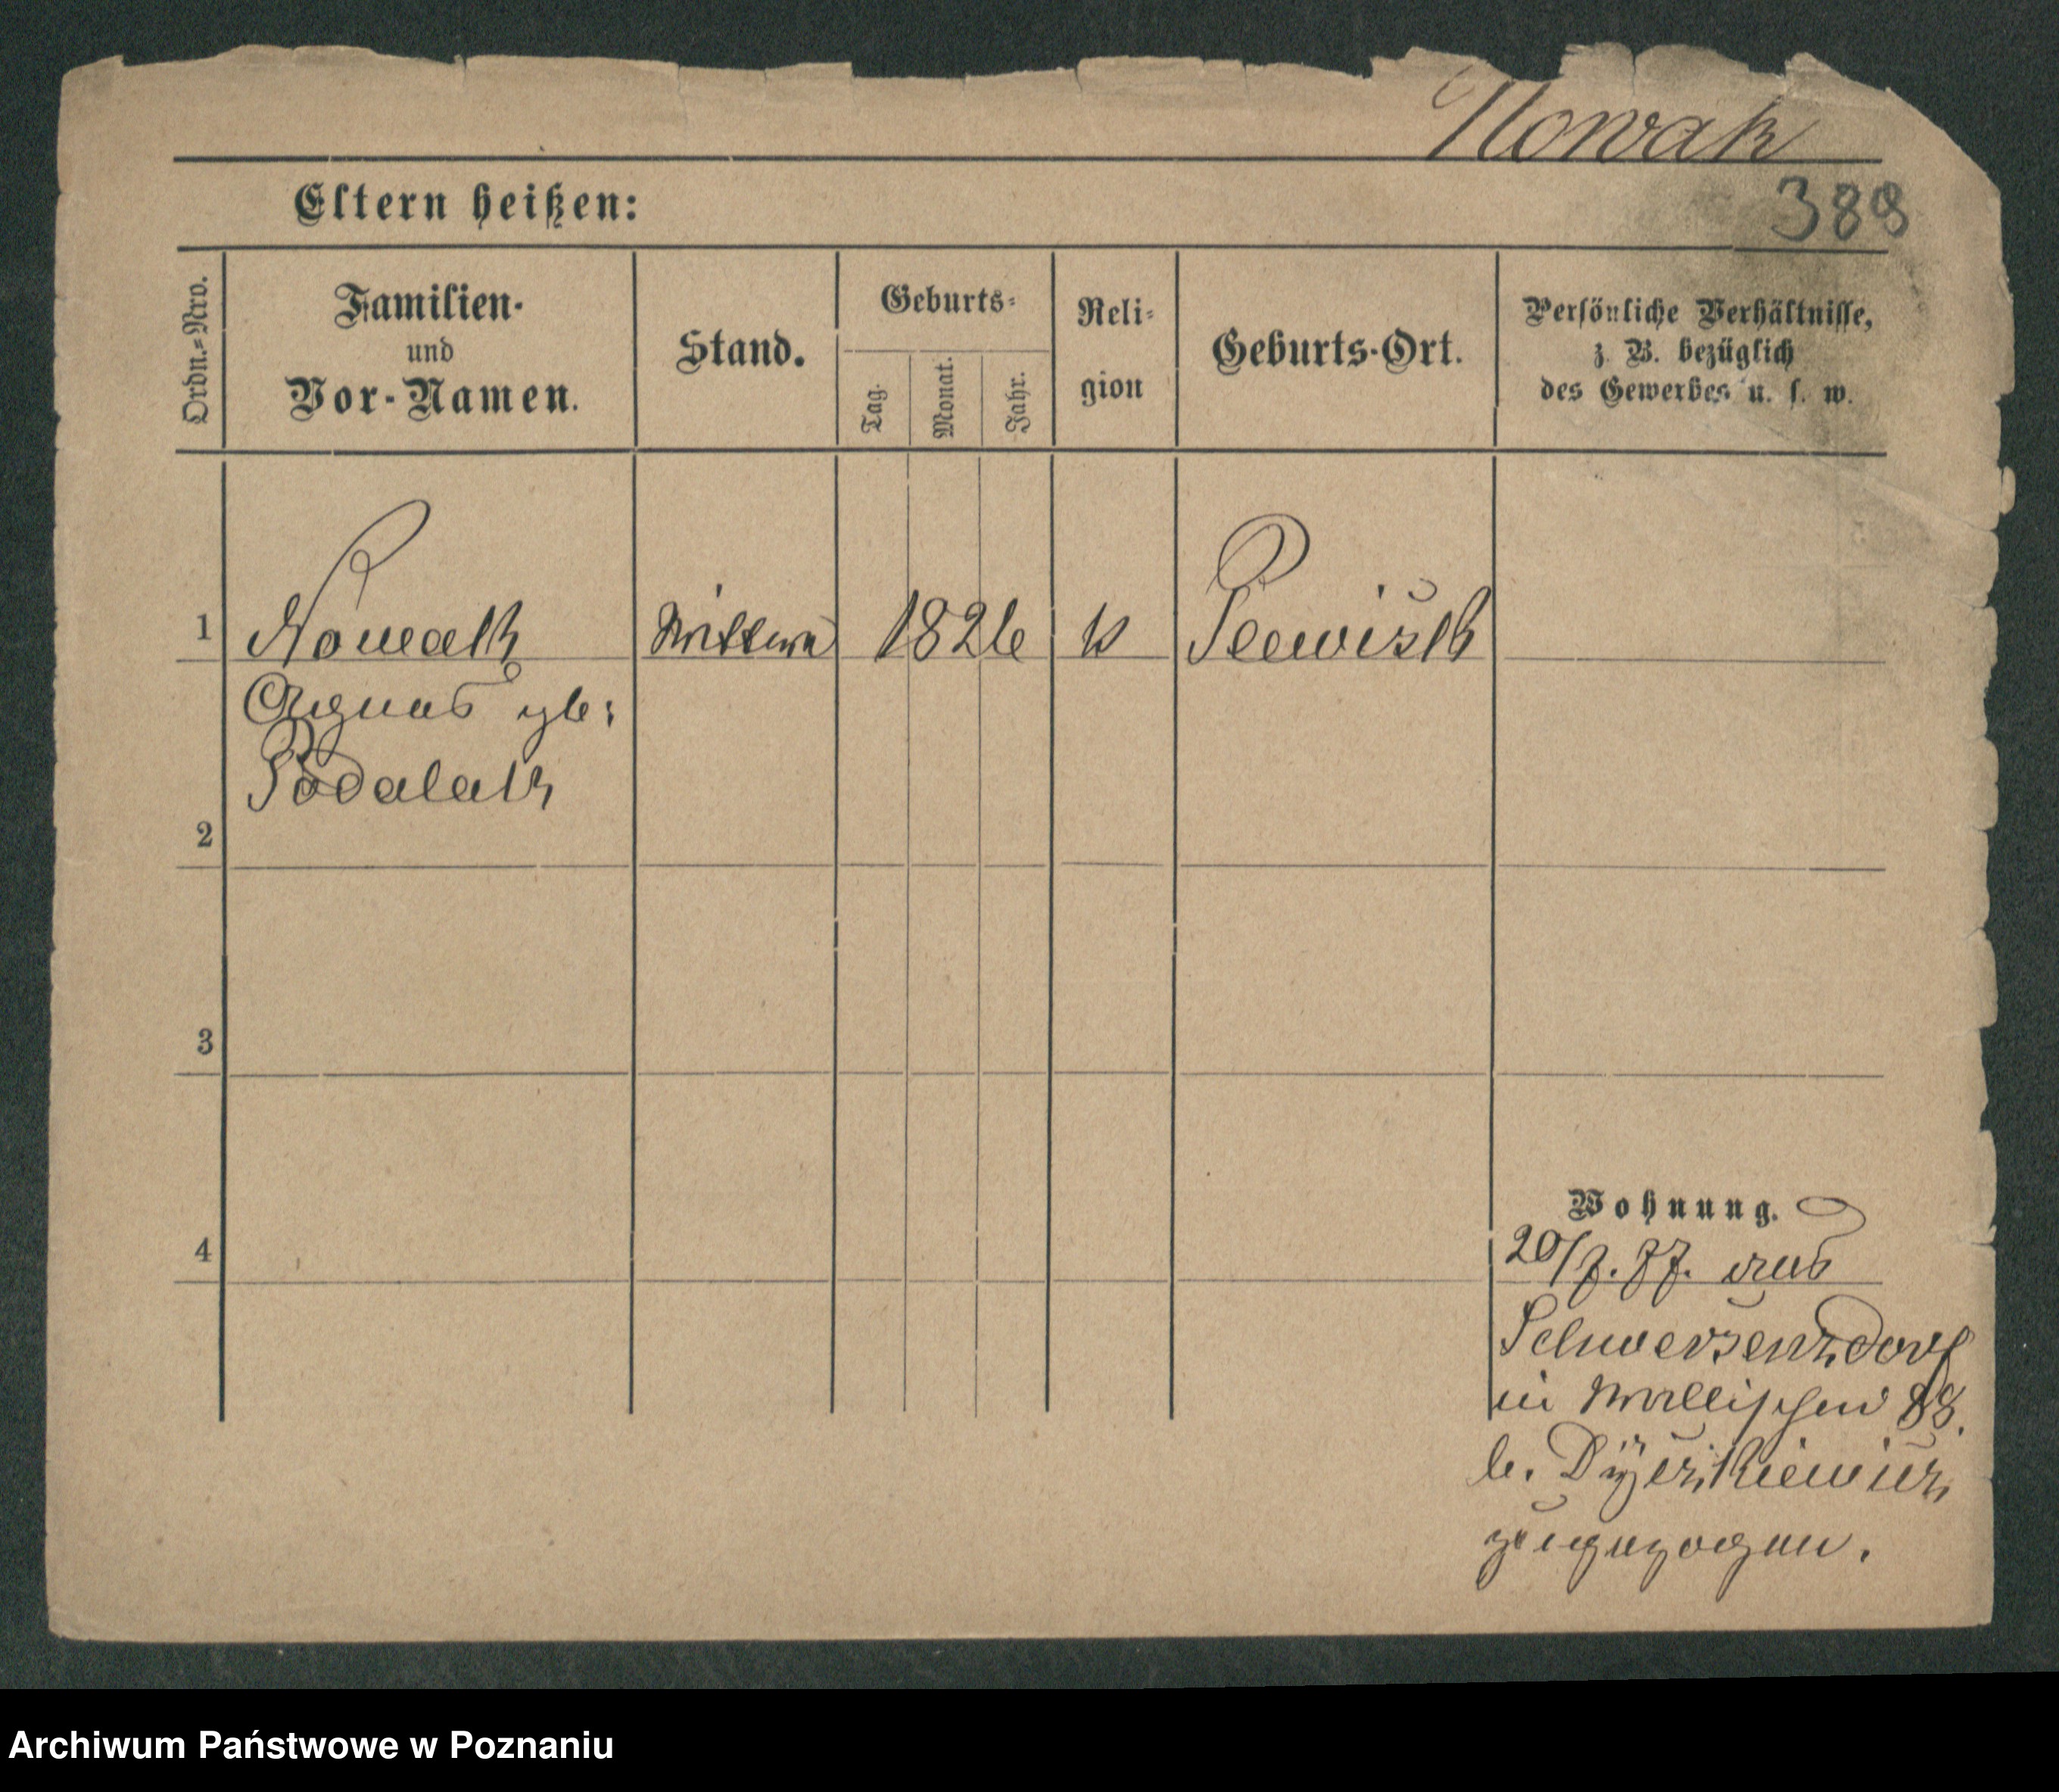 Nowak
388
Eltern heißen:
Ordn.=Nro.
Familien-
und
Vor-Namen.
Stand.
Geburts=
Tag.
Monat.
Jahr.
Reli=
gion
Geburts-Ort.
Persönliche Verhältnisse,
z. B. bezüglich
des Gewerbes u. s. w.
1 Nowack Wittwe 1826 k
Agnes gb:
Podalak
2
3
4
Wohnung.
20/7. 77. aus
Schwersenzdorf
in Wallischei 88.
b.
zugezogen.
Archiwum Państwowe w Poznaniu